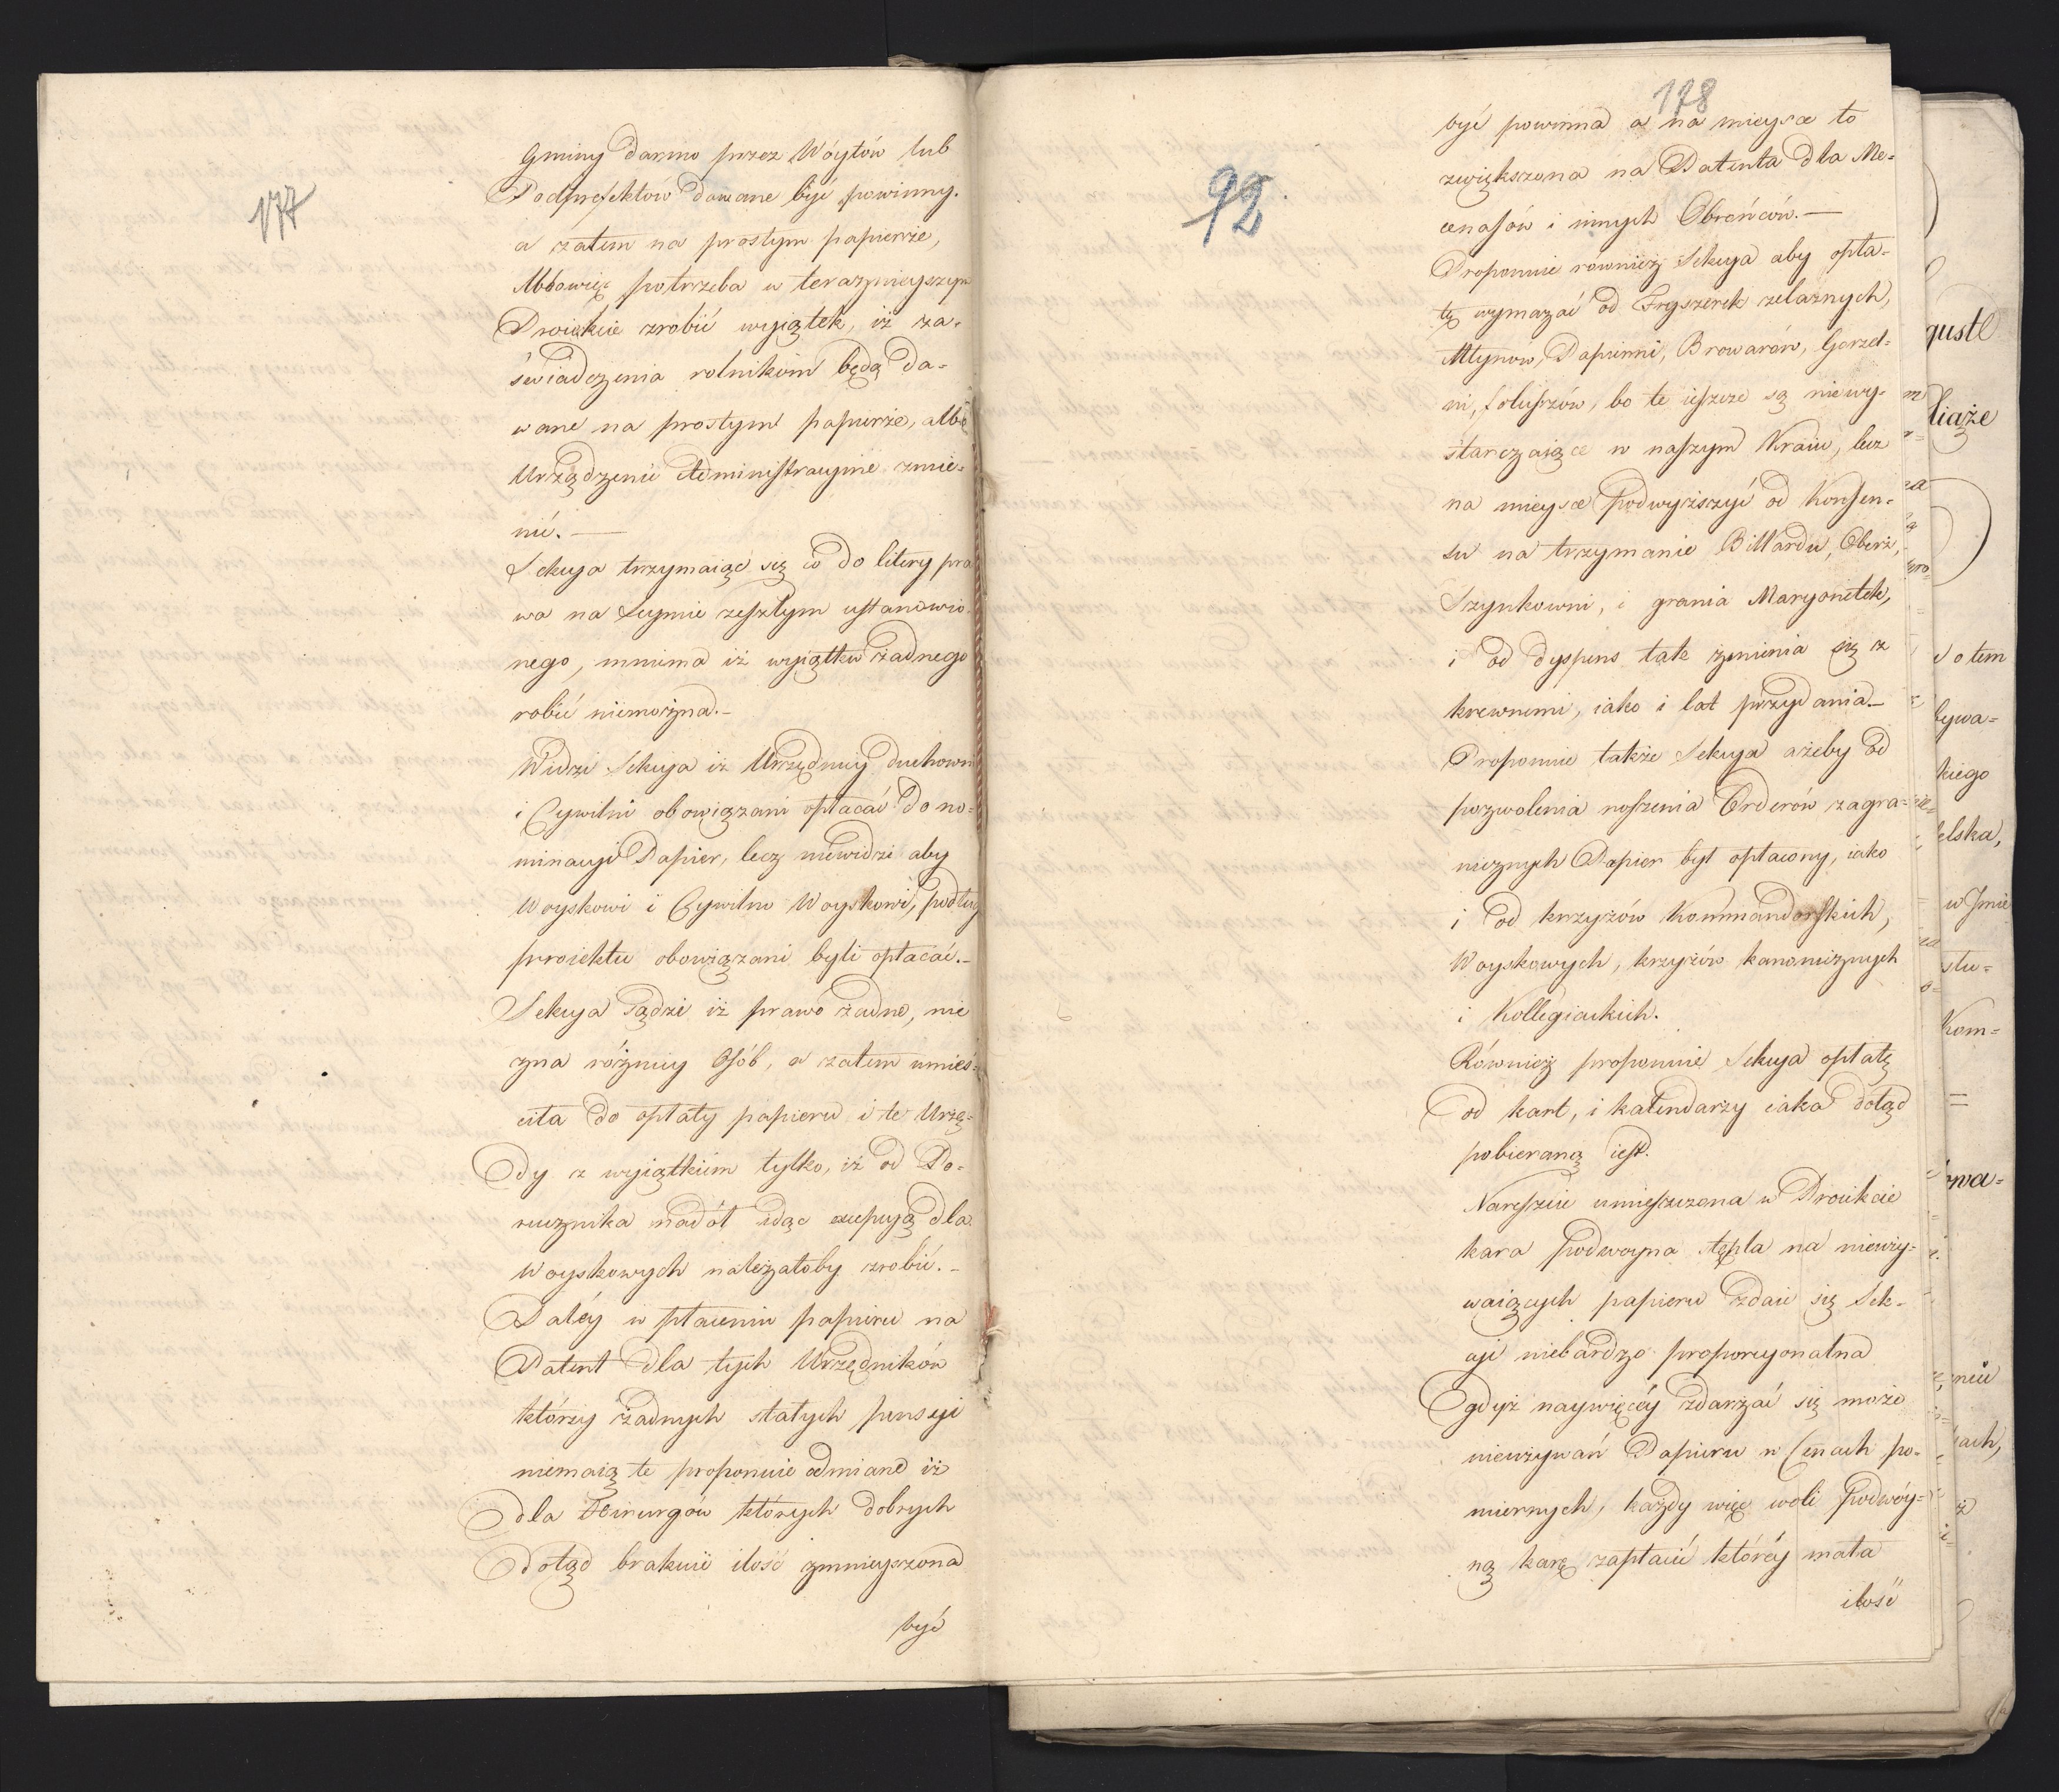 177
Gminy darmo przez Wóytów lub
Podprefektów dawane być powinny.
a zatem na prostym papierze,
Albowięc potrzeba w teraznieyszym
Proiekcie zrobić wyiątek, iż za-
świadczenia rolnikom będą da-
wane na prostym papierze, albo
Urządzenie Administracyine zmie-
nić. —
Sekcya trzymaiąc się co do litery pra
wa na Seymie zeszłym ustanowio
nego, mnima iż wyiątku żadnego
robić niemożna. -
Widzi Sekcya iż Urzędnicy duchown
i Cywilni obowiązani opłacać do no-
minacyi Papier, lecz niewidzi aby
Woyskowi i Cywilno Woyskowi, podług
proiektu obowiązani byli opłacać. -
Sekcya sądzi iż prawo żadne, nie
zna różnicy Osób, a zatem umieś-
ciła do opłaty papieru i te Urzę-
dy z wyiątkiem tylko, iż od Po-
rucznika nadół idąc excepcyą dla
Woyskowych należałoby zrobić. -
Daléy w płaceniu papieru na
Patent dla tych Urzędników
którzy żadnych stałych pensyi
niemaią te proponuie odmianę iż
dla Chirurgów których dobrych
dotąd brakuie ilość zmnieyszona
być
178
92.
być powinna a na mieysce to
zwiększona na Patenta dla Me-
cenasów i innych Obrońców. —
Proponuie również Sekcya aby opła-
tę wymazać od Fryszerek żelaznych,
Młynow, Papierni, Browarów, Gorzel-
ni, foluszów, bo te ieszcze są niewy-
starczaiące w naszym Kraiu, lecz
na mieysce podwyższyć od Konsen-
su na trzymanie Billardu, Oberż,
Szynkowni, i grania Maryonetek,
i od dyspens tak żenienia się z
krewnemi, iako i lat przydania. -
Proponuie także Sekcya ażeby od
pozwolenia noszenia Orderów zagra-
nicznych Papier był opłacony, iako
i od krzyżów Kommandorskich,
Woyskowych, krzyżów kanonicznych
i Kollegiackich.
Również proponuie Sekcya opłatę
od kart, i kalendarzy iaka dotąd
pobieraną iest.
Nareszcie umieszczona w Proiekcie
kara podwoyna stępla na nieuży-
waiących papieru zdaie się Sek-
cyi niebardzo proporcyonalna
gdyż naywięcéy zdarzać się może
nieużywań Papieru w Cenach po-
miernych, każdy więc woli podwóy-
ną karę zapłacić któréy mała
ilość